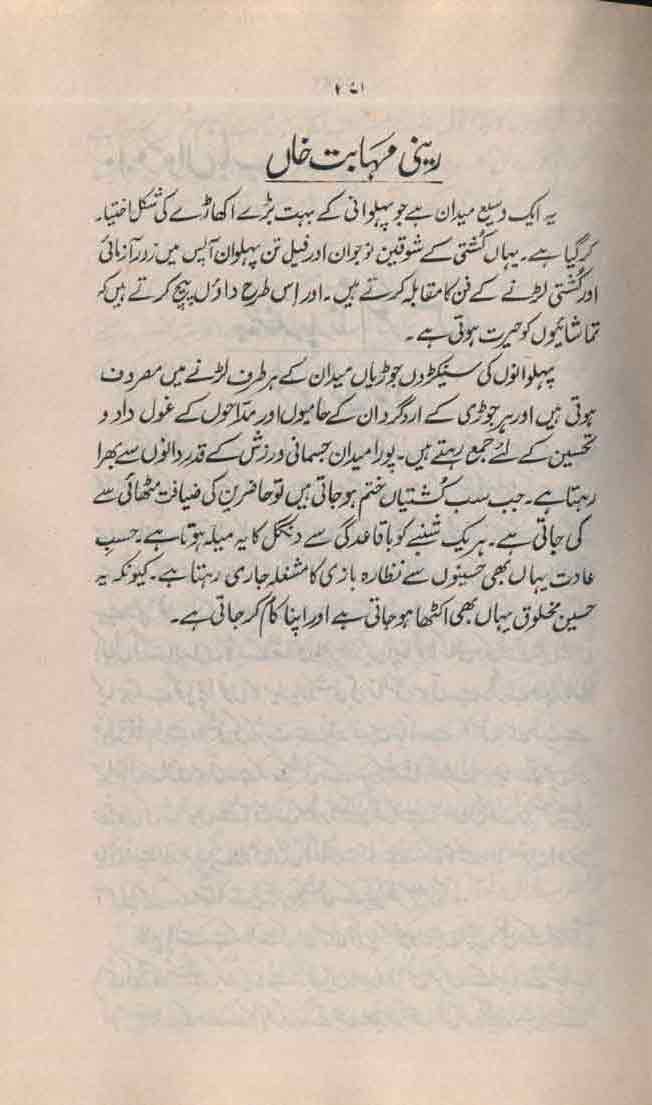 ۱۷۱
رینی مہابت خاں
یہ ایک وسیع میدان ہے جو پہلوانی کے بہت بڑے اکھاڑے کی شکل اختیار
کر گیا ہے۔ یہاں کُشتی کے شوقین نوجوان اور فیل تن پہلوان آپس میں زور آزمائی
اور کُشتی لڑنے کے فن کا مقابلہ کرتے ہیں۔ اور اِس طرح داؤں پیچ کرتے ہیں کہ
تماشائیوں کو حیرت ہوتی ہے۔
پہلوانوں کی سینکڑوں جوڑیاں میدان کے ہر طرف لڑنے میں مصروف
ہوتی ہیں اور ہر جوڑی کے اردگرد ان کے حامیوں اور مدّاحوں کے غول داد و
تحسین کے لئے جمع رہتے ہیں۔ پورا میدان جسمانی ورزش کے قدر دانوں سے بھرا
رہتا ہے۔ جب سب کُشتیاں ختم ہوجاتی ہیں تو حاضرین کی ضیافت مٹھائی سے
کی جاتی ہے۔ ہر یک شنبے کو باقاعدگی سے دنگل کا یہ میلہ ہوتا ہے۔ حسبِ
عادت یہاں بھی حسینوں سے نظارہ بازی کا مشغلہ جاری رہتا ہے۔ کیونکہ یہ
حسین مخلوق یہاں بھی اکٹھا ہو جاتی ہے اور اپنا کام کر جاتی ہے۔